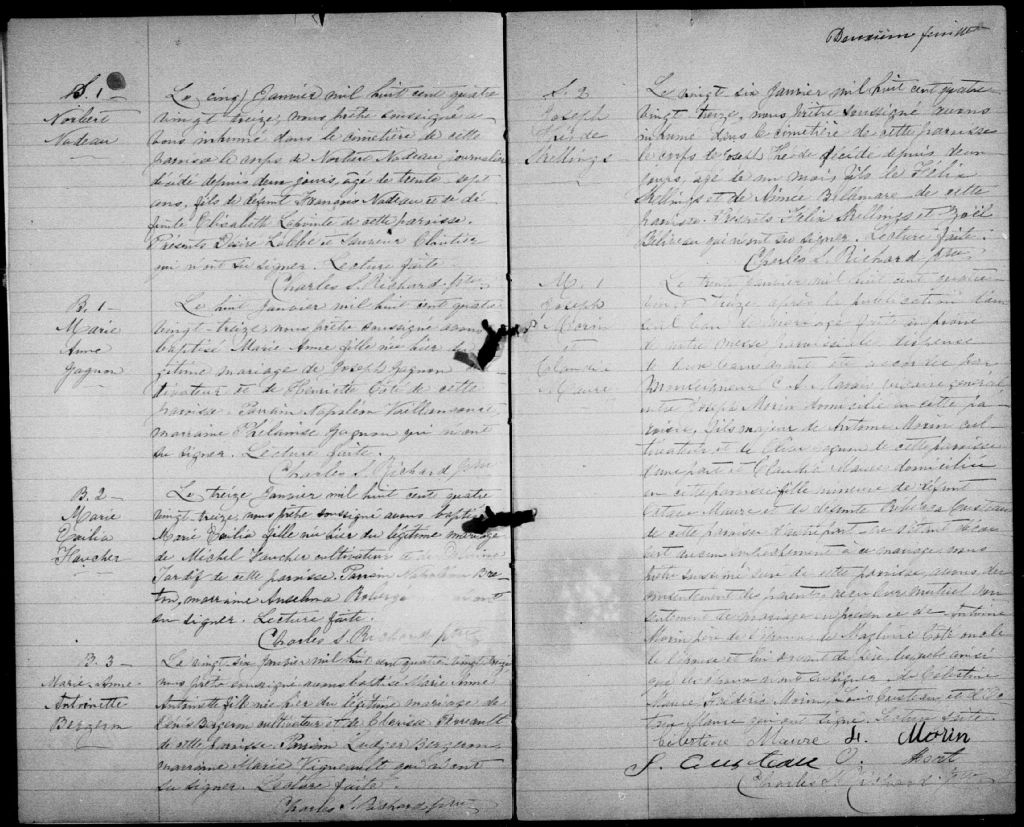 S. 1
Norbert
Nadeau
Le cinq Janvier mil huit cent quatre
vingt treize, nous prêtre soussigné a-
vons inhumé dans le cimetière de cette
paroisse le corps de Norbert Nadeau journalier
décédé depuis deux jours, agé de trente sept
ans, fils de defunt François Nadeau et de dé-
funte Elisabeth Lapointe de cette paroisse.
Présents Désiré Labbé et
qui n'ont su signer. Lecture faite.
Charles S. Richard ptre
B. 1
Marie
Anne
Gagnon
Le huit Janvier mil huit cent quatre
vingt-treize, nous prêtre soussigné avons
baptisé Marie Anne fille née hier du lé-
gitime mariage de Joseph Gagnon
tivateur et de Henriette Coté de cette
paroisse. Parrain Napoléon Vaillancourt
marraine Phelanise Gagnon qui n'ont
su signer. Lecture faite.
Charles S. Richard ptre
B. 2
Marie
Exilia
Faucher
Le treize Janvier mil huit cent quatre
vingt-treize, nous prêtre soussigné avons baptisé
Marie Exilia fille née hier du légitime mariage
de Michel Faucher cultivateur et de
Tardif de cette paroisse. Parrain Napoléon Bre-
ton, marraine Anselma Roberge n'ont
su signer. Lecture faite.
Charles S. Richard ptre
B. 3
Marie-Anne
Antoinette
Bergeron
Le vingt-six Janvier mil huit cent quatre vingt treize
nous prêtre soussigné avons baptisé Marie Anne
Antoinette fille née hier du légitime mariage de
Bergeron cultivateur et de Clarisse
de cette paroisse. Parrain Ludger Bergeron
marraine Marie Vigneault qui n'ont
su signer. Lecture faite.
Charles S. Richard ptre
Deuxième feuillet
S. 2
Joseph
Skellings
Le vingt six Janvier mil huit cent quatre
vingt treize, nous prêtre soussigné avons
inhumé dans le cimetière de cette paroisse
le corps de Joseph décédé depuis deux
jours, agé de un mois, fils de Félix
Skellings et de Aimée Bellemare de cette
paroisse. Présents Félix Skellings et Joël
Béliveau qui n'ont su signer. Lecture faite.
Charles S. Richard ptre
M. 1
Joseph
Morin
et
Claudia
Maure
Le trente Janvier mil huit cent quatre
vingt treize après la publication d'un
seul ban de mariage faite au prône
de notre messe paroissiale, dispense
de deux bans ayant été accordée par
Monseigneur C. A. Marois vicaire général
entre Joseph Morin domicilié en cette pa-
roisse, fils majeur de Antoine Morin cul-
tivateur et de de cette paroisse
d'une part et Claudia Maure domiciliée
en cette paroisse fille mineure de défunt
Maure et de défunte Rebecca Custeau
de cette paroisse d'autre part ne s'étant décou-
vert aucun empêchement à ce mariage nous
prêtre soussigné curé de cette paroisse, avons du
consentement des parents reçu leur mutuel con-
sentement de mariage en présence de Antoine
Morin père de l'époux, de Coté oncle
de l'épouse et lui servant de père lesquels ainsi
que les époux n'ont su signer, de Célestine
Maure, Frédéric Morin, Louis Custeau et
Maure qui ont signé. Lecture faite.
Célestine Maure F. Morin
L. Custeau
Charles S. Richard ptre